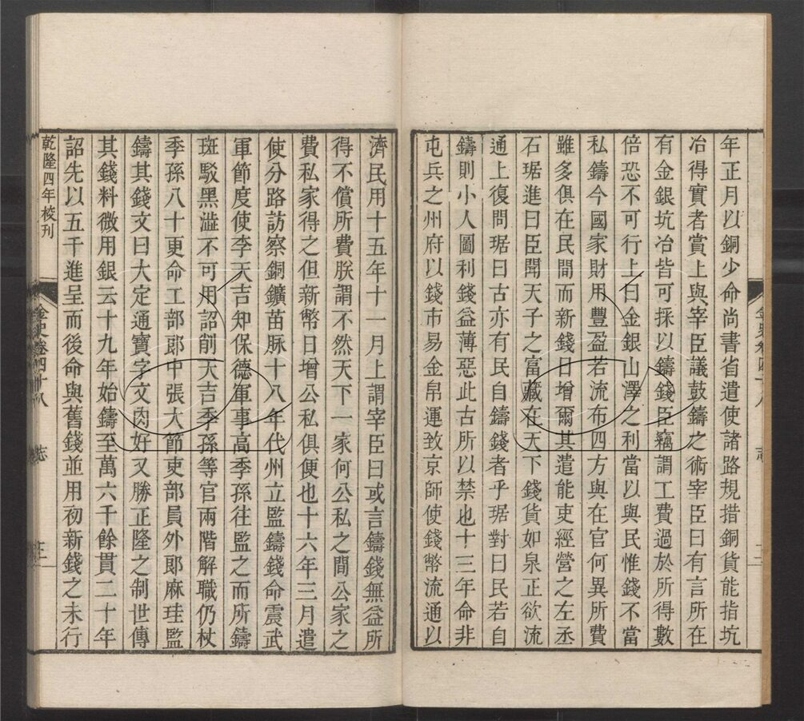 年正月以銅少命尚書省遣使諸路規措銅貨能指坑
冶得實者賞上與宰臣議鼓鑄之術宰臣曰有言所在
有金銀坑冶皆可採以鑄錢臣竊謂工費過於所得數
倍恐不可行上曰金銀山澤之利當以與民惟錢不當
私鑄今國家財用豐盈若流布四方與在官何異所費
雖多俱在民間而新錢日增爾其遣能吏經營之左丞
石琚進曰臣聞天子之富藏在天下錢貨如泉正欲流
通上復問琚曰古亦有民自鑄錢者乎琚對曰民若自
鑄則小人圖利錢益薄惡此古所以禁也十三年命非
屯兵之州府以錢市易金帛運致京師使錢幣流通以
濟民用十五年十一月上謂宰臣曰或言鑄錢無益所
得不償所費朕謂不然天下一家何公私之間公家之
費私家得之但新幣日增公私俱便也十六年三月遣
使分路訪察銅鑛苗脉十八年代州立監鑄錢命震武
軍節度使李天吉知保德軍事高季孫往監之而所鑄
斑駁黑澁不可用詔削天吉季孫等官兩階解職仍杖
季孫八十更命工部郎中張大節吏部員外郎麻珪監
鑄其錢文曰大定通寶字文肉好又勝正隆之制世傳
其錢料微用銀云十九年始鑄至萬六千餘貫二十年
詔先以五千進呈而後命與舊錢並用初新錢之未行
乾隆四年校刊
金史卷四十八
志